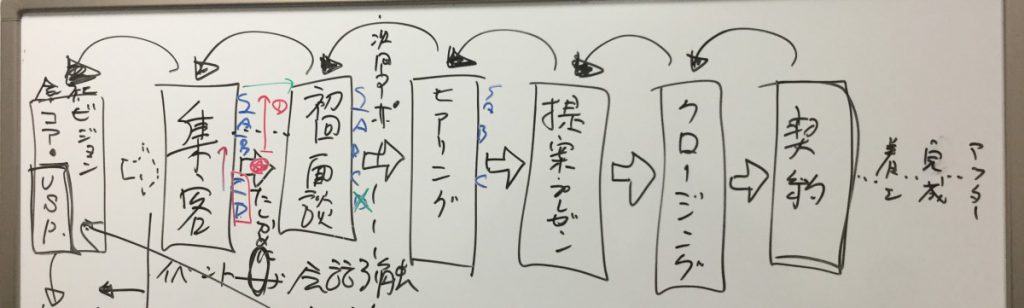 会社ビジョン
コア・
USP.
集客
S
A
B
C
D
①
初回面談
S
A
B
C
次回アポ
ヒアリング
S
A
B
C
提案・プレゼン
クロージング
契約
着工
完成
アフター
イベント
会話了